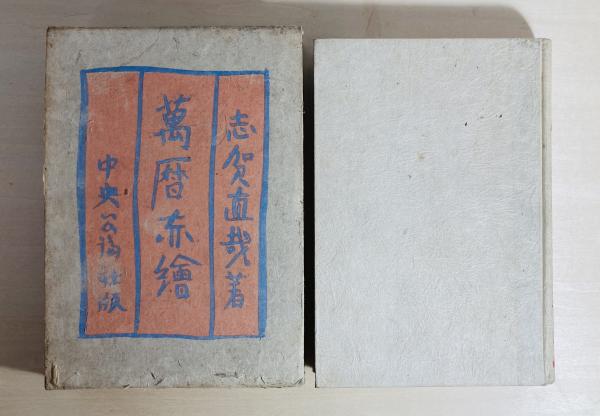 志賀直哉著
萬暦赤繪
中央公論社版